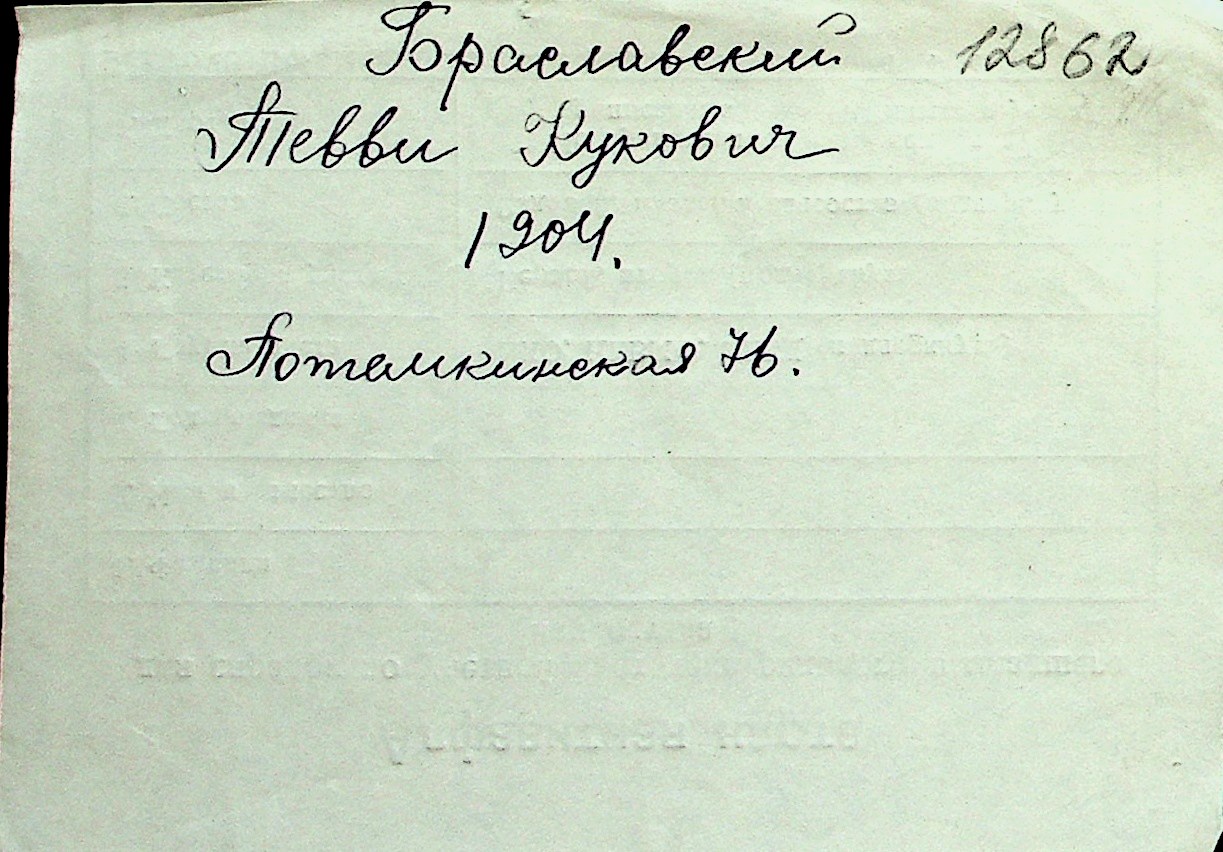 Браславский 12862
Тевви Кукович
1904.
Потемкинская 76.